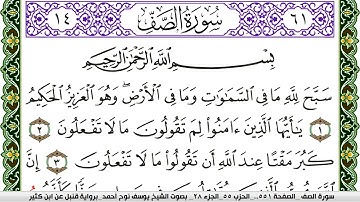 ٦١ سُورَةُ الصَّفِّ ١٤
بِسْمِ اللَّهِ الرَّحْمَٰنِ الرَّحِيمِ
سَبَّحَ لِلَّهِ مَا فِي السَّمَاوَاتِ وَمَا فِي الْأَرْضِ وَهُوَ الْعَزِيزُ الْحَكِيمُ
١ يَٰأَيُّهَا الَّذِينَ ءَامَنُوا لِمَ تَقُولُونَ مَا لَا تَفْعَلُونَ ٢
كَبُرَ مَقْتًا عِندَ اللَّهِ أَن تَقُولُوا مَا لَا تَفْعَلُونَ ٣ إِنَّ
سورة الصف_ الصفحة ٥٥١_ الحزب ٥٥_الجزء ٢٨_ بصوت الشيخ يوسف نوح أحمد_ برواية قنبل عن ابن كثير